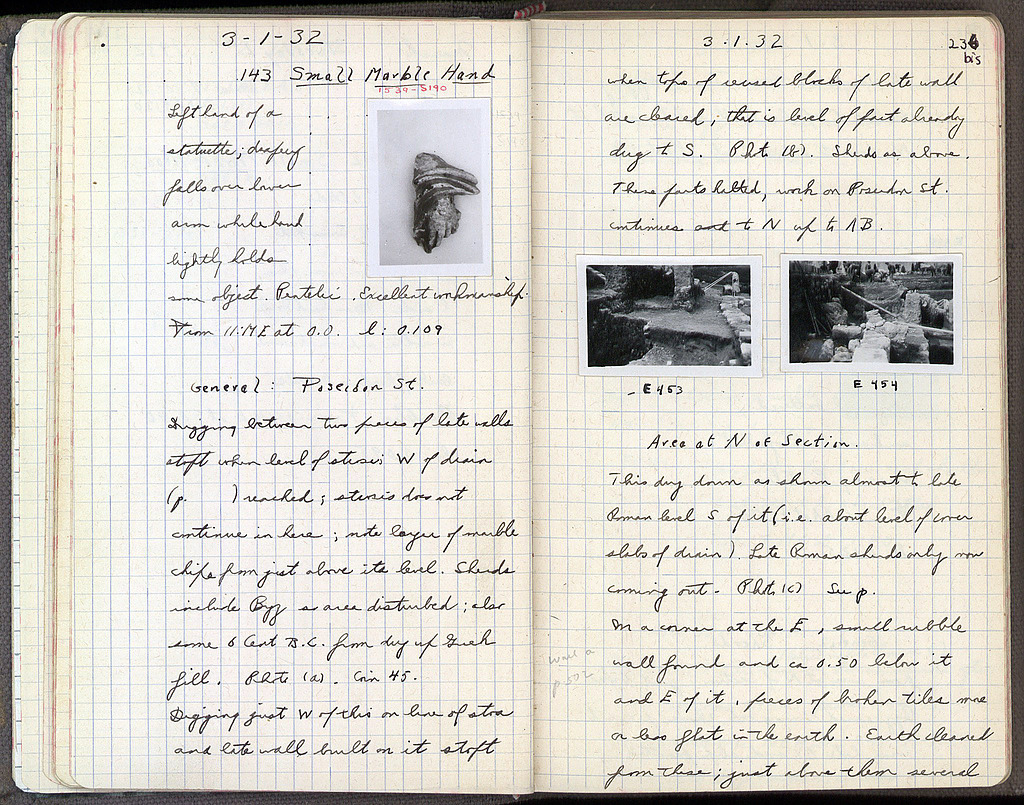 3-1-32
143 Small Marble Hand
1539-S190
Left hand of a
statuette; drapery
falls over lower
arm while hand
lightly holds
some object. Pentelic. Excellent workmanship.
From 11:ME at 0.0. l: 0.109
General: Poseidon St.
Digging between two pieces of late walls
stopt when level of stereo W of drain
(p. ) reached; stereo does not
continue in here; note layer of marble
chips from just above its level. Sherds
include Byz so area disturbed; also
some 6 Cent B.C. from dug up Greek
fill. Photo (a). Coin 45.
Digging just W of this on line of stoa
and late wall built on it stopt
3.1.32
236
bis
when tops of reused blocks of late wall
are cleared; that is level of part already
dug to S. Photo (b). Sherds as above.
These parts halted, work on Poseidon St.
continues to N up to ΛB.
E453
E 454
Area at N of Section.
This dug down as shown almost to late
Roman level S of it (i.e. about level of cover
slabs of drain). Late Roman sherds only now
coming out. Photo (c) See p.
In a corner at the E, small rubble
wall found and ca 0.50 below it
wall a
p. 502
and E of it, pieces of broken tiles more
or less flat in the earth. Earth cleaned
from these; just above them several